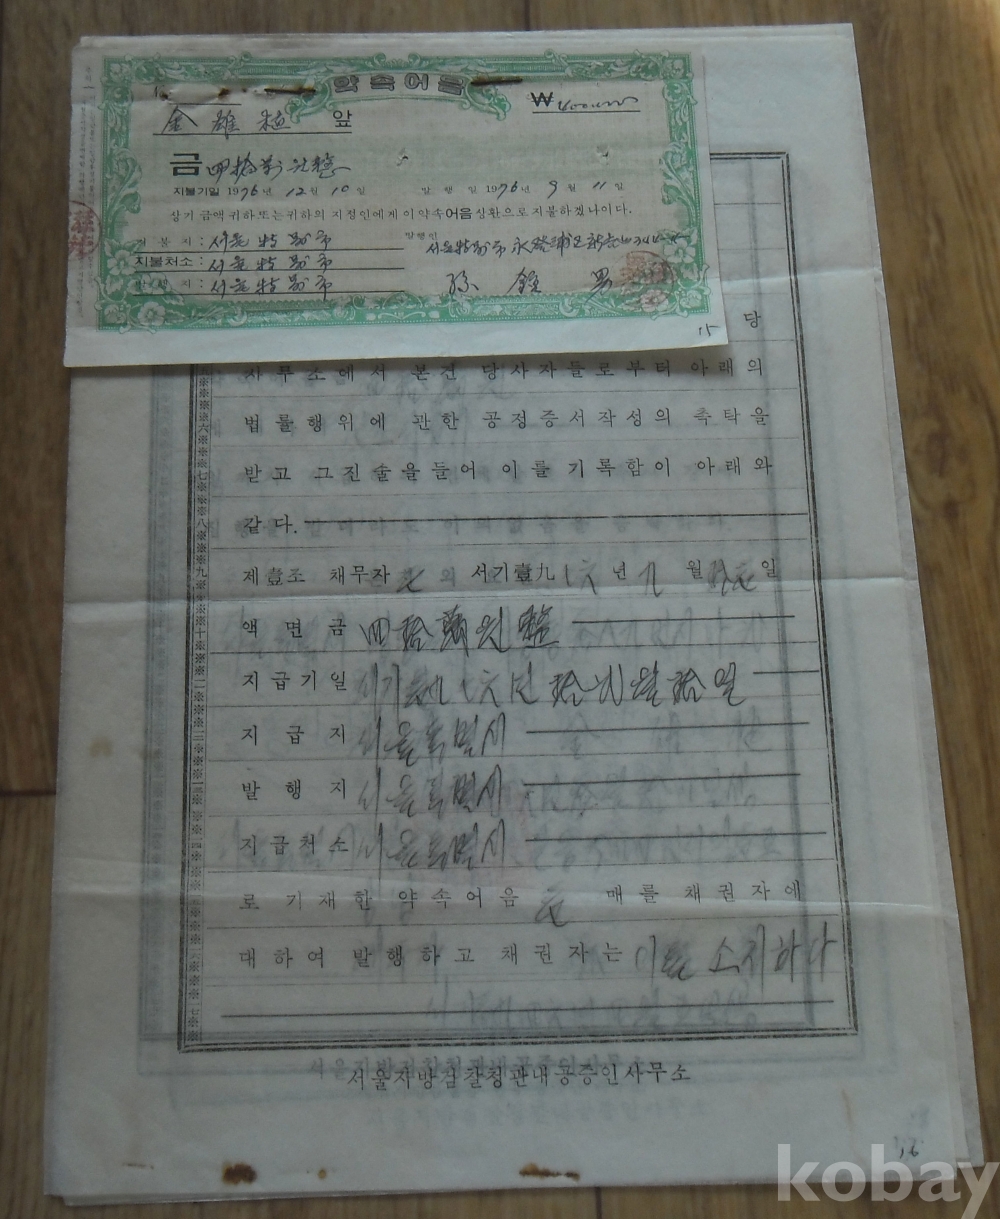 약속어음
金雄植 앞
₩400,000
금 四拾萬원整
지불기일 1976년 12월 10일
발행일 1976년 9월 11일
상기 금액 귀하 또는 귀하의 지정인에게 이 약속어음 상환으로 지불하겠나이다.
지불지 : 서울特別市
발행인
지불처소 : 서울特別市
서울特別市 永登浦区
발행지 : 서울特別市
孫 鍾
15
당
사무소에서 본건 당사자들로부터 아래의
법률행위에 관한 공정증서작성의 촉탁을
받고 그진술을들어 이를기록함이 아래와
같다.
제壹조 채무자 의 서기壹九 년 월 일
액면금 四拾萬원整
지급기일 서기 년 拾 월 拾 일
지급지 서울특별시
발행지 서울특별시
지급처소 서울특별시
로기재한 약속어음 매를 채권자에
대하여 발행하고 채권자는 이를 소지하다
서울지방검찰청관내공증인사무소
16
kobay